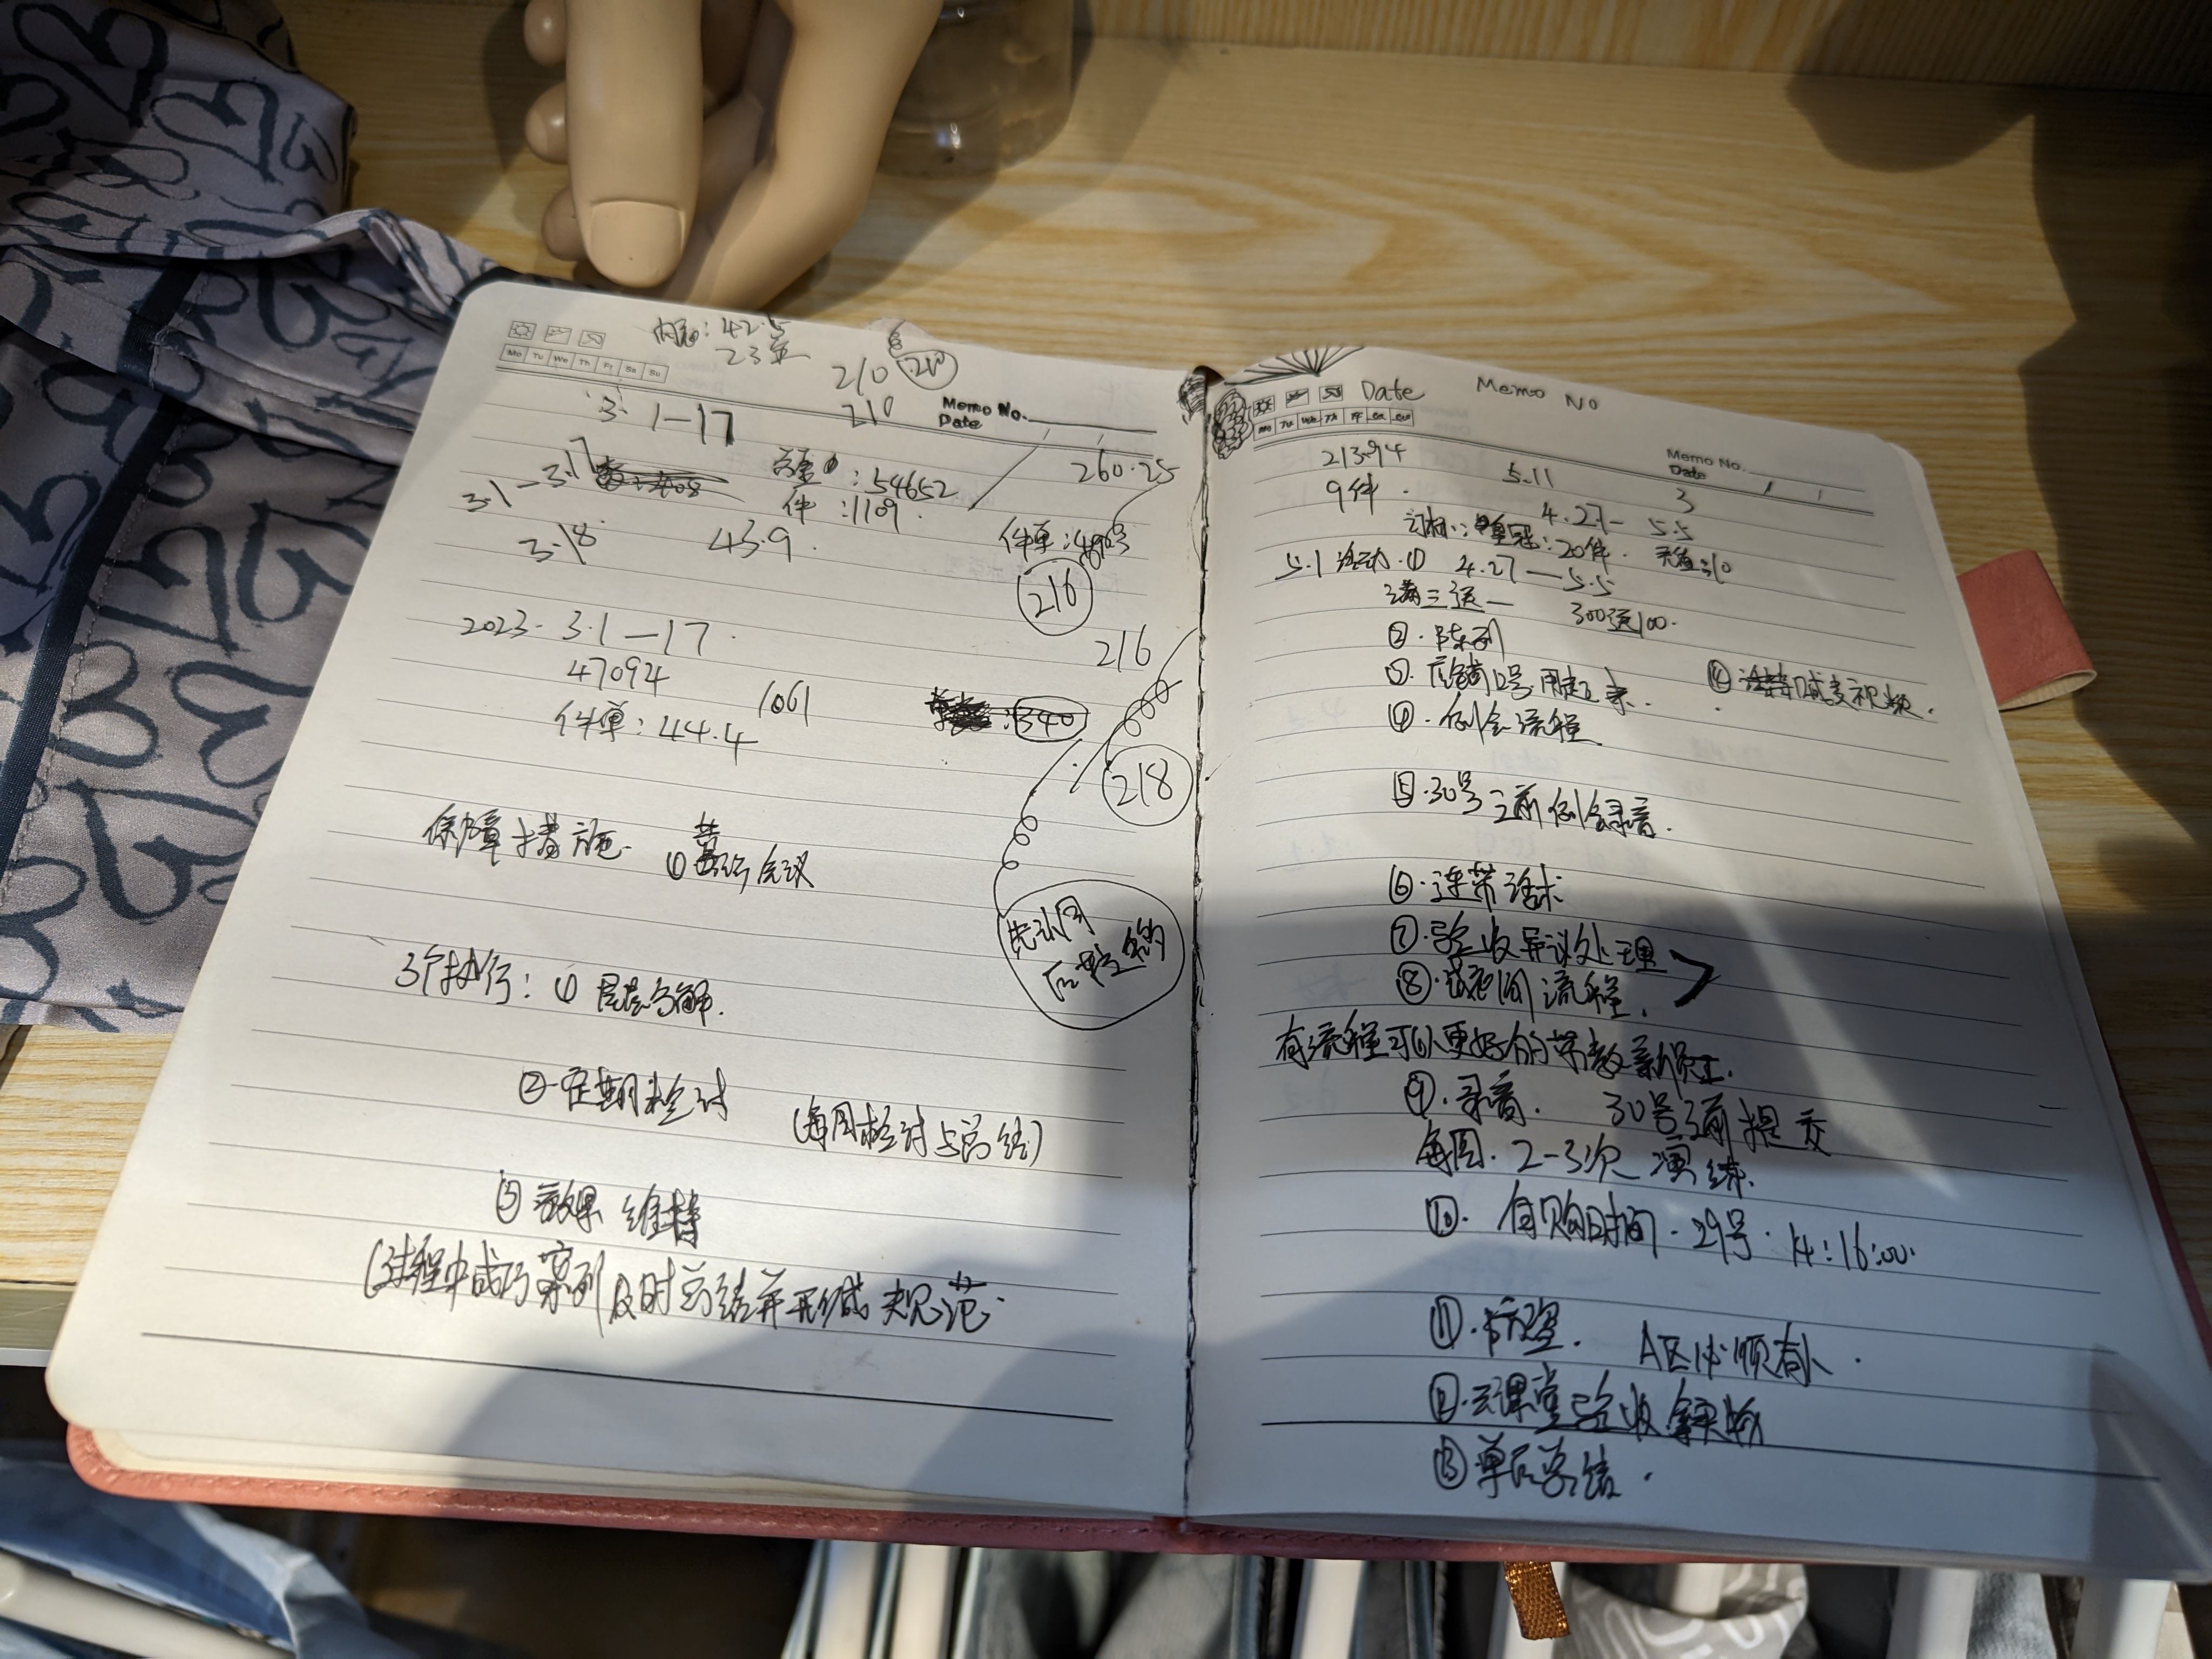 42.5
23
210 210
Mo Tu We Th Fr Sa Su
3. 1—17 210 Memo No.
Date
3.1—3.17 :54652 260.25
件:1109.
3.18 43.9. 件单:
216
2023. 3.1—17. 216
47094 1061
件单:44.4 340
218
保障措施. ① 会议
先
后
3个执行:① 层层分解.
②.定期检讨 (每周检讨与总结)
③ 效果 维持
(过程中成功案列及时总结并形成规范.
Date Memo No
Mo Tu We Th Fr Sa Su
21394 5.11 Memo No.
Date
9件. 3
4.27— 5.5
:20件.
5.1 活动.① 4.27—5.5
满三送一 300送100.
②.陈列
③.
④.例会流程.
⑤.30号之前例会录音.
⑥.连带话术
⑦.验收异议处理
⑧.试衣间流程.
有流程可以更好的带教新员工.
⑨.录音. 30号之前提交
每周.2-3次 演练.
⑩. 自购时间.29号.14:16:00.
⑪. A区必须有人.
⑫.云课堂验收
⑬单后总结.